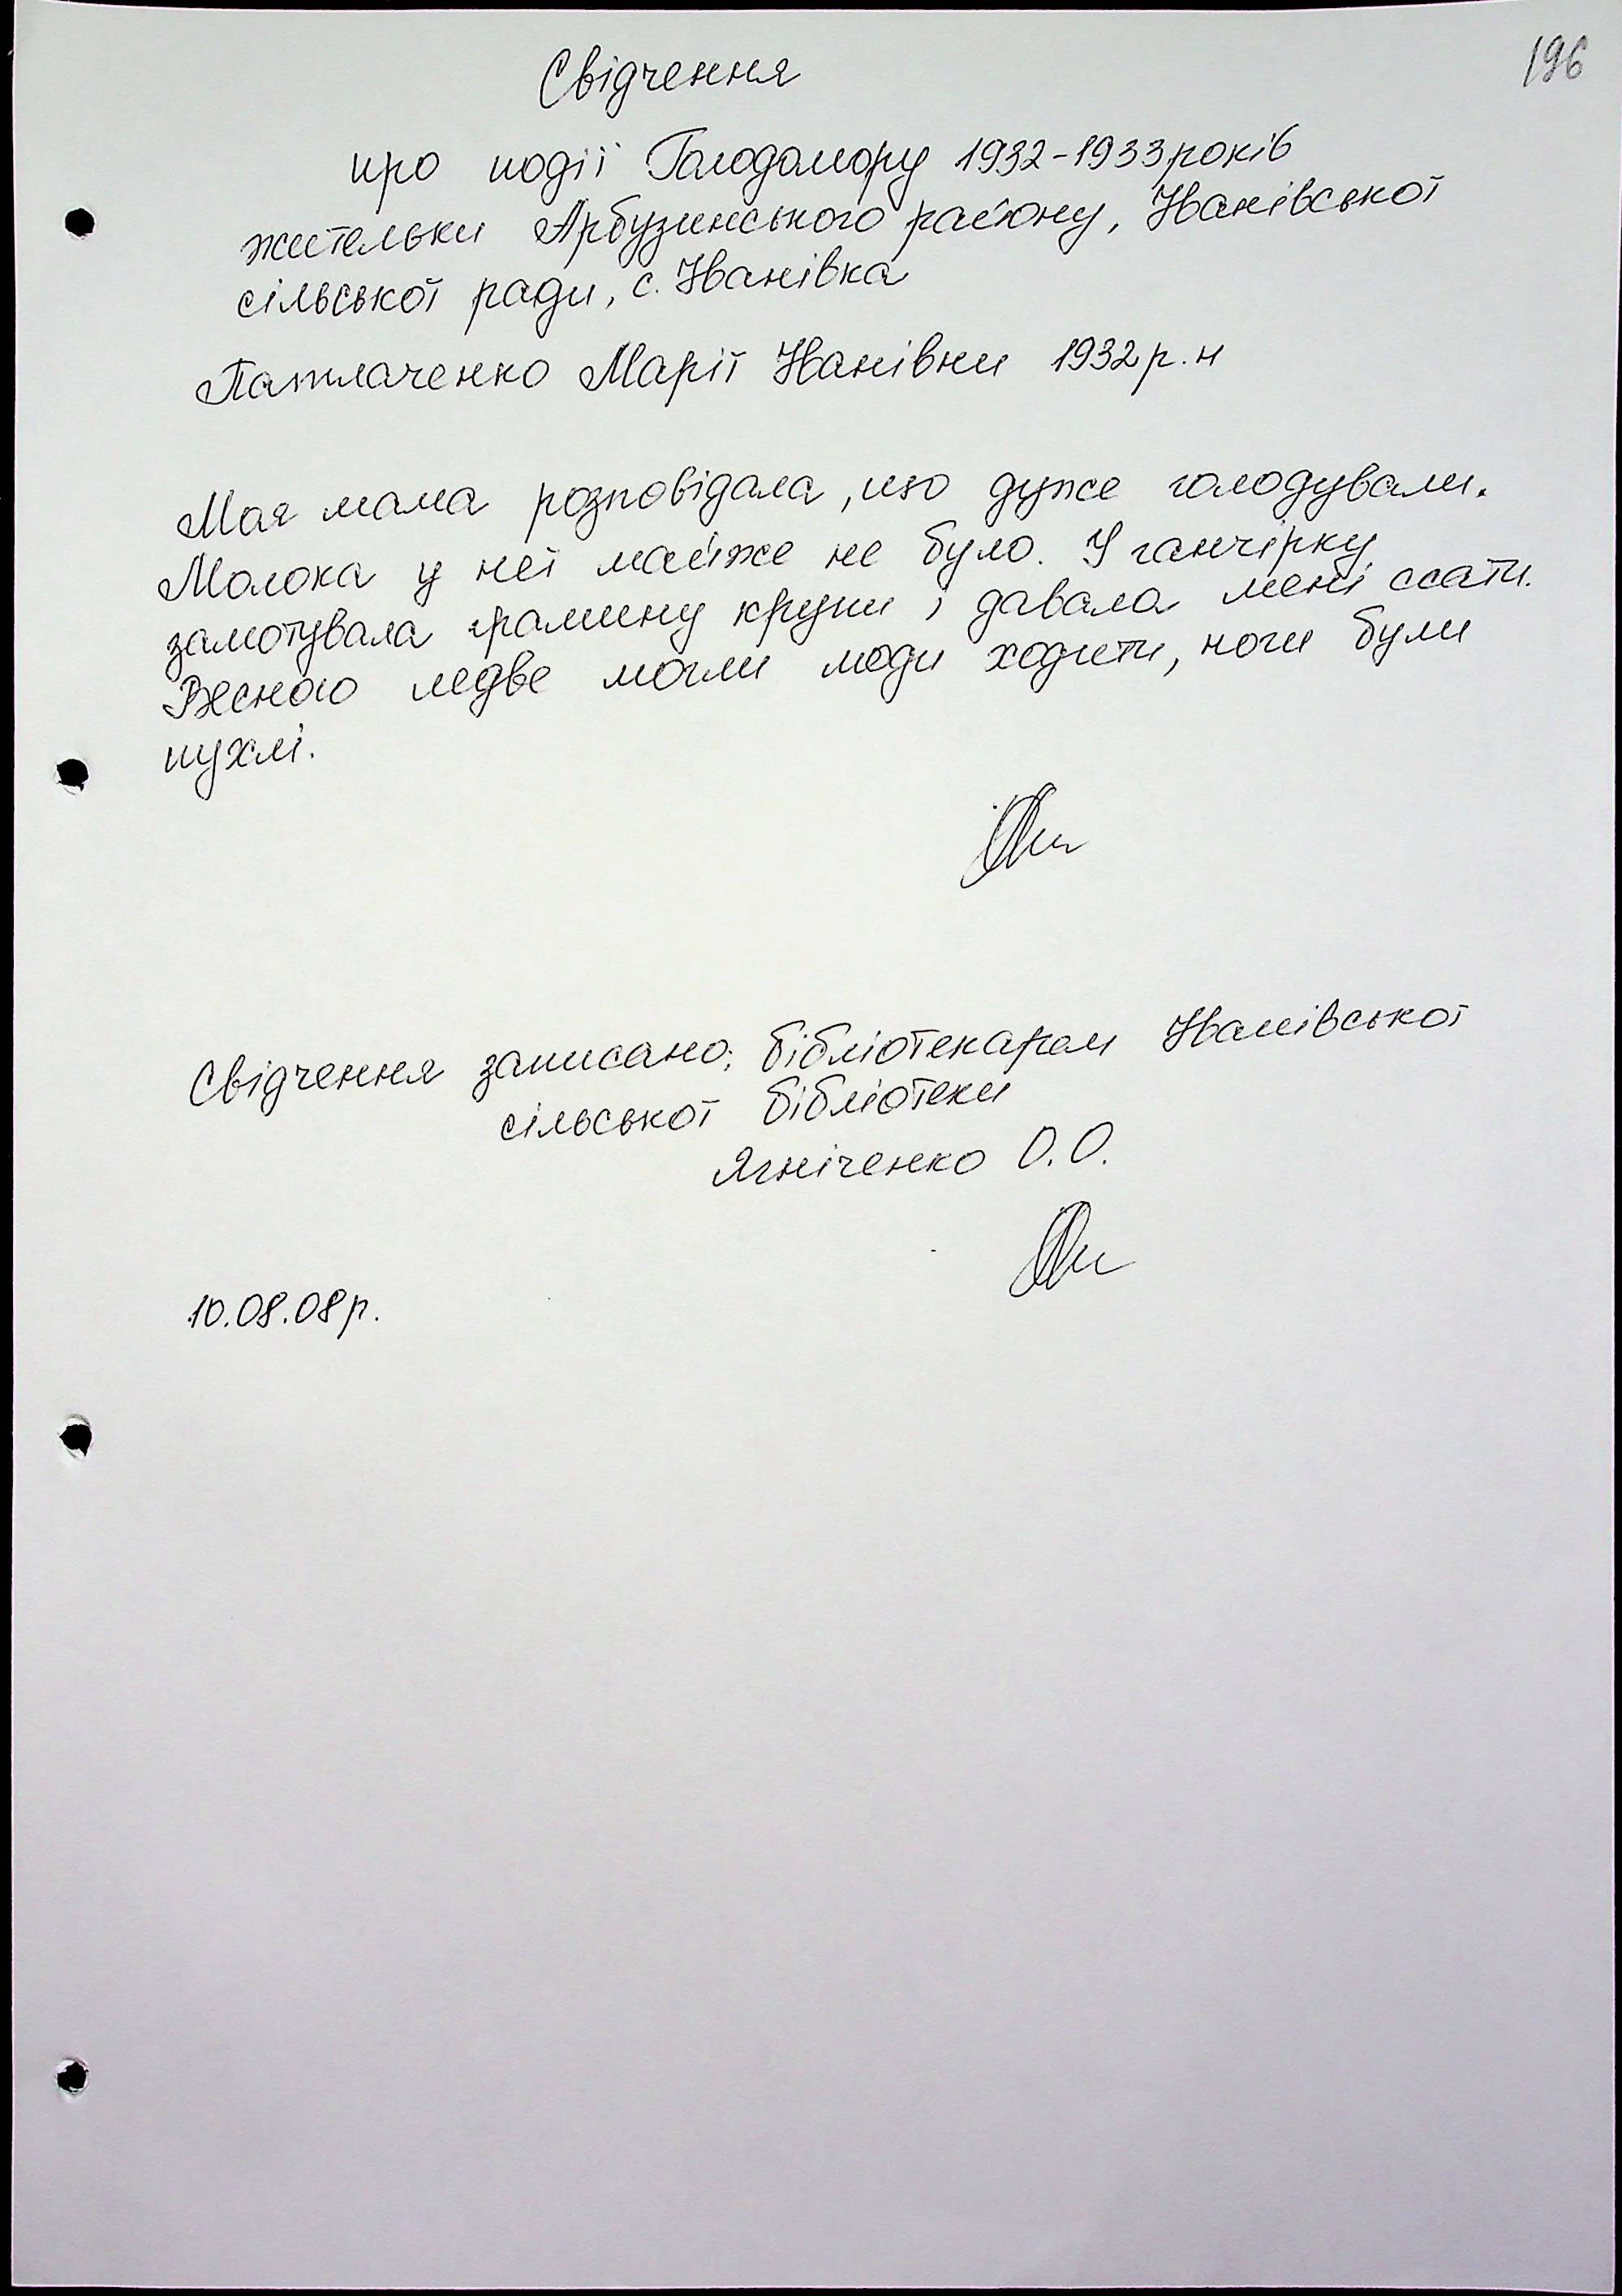 196
Свідчення
про події Голодомору 1932-1933 років
жительки Арбузинського району, Іванівської
сільської ради, с. Іванівка
Патлаченко Марії Іванівни 1932 р. н
Моя мама розповідала, що дуже голодували.
Молока у неї майже не було. У ганчірку
замотувала грамину крупи і давала мені ссати.
Весною ледве могли люди ходити, ноги були
пухлі.
Свідчення записано: бібліотекарем Іванівської
сільської бібліотеки
Ягніченко О.О.
10.08.08р.